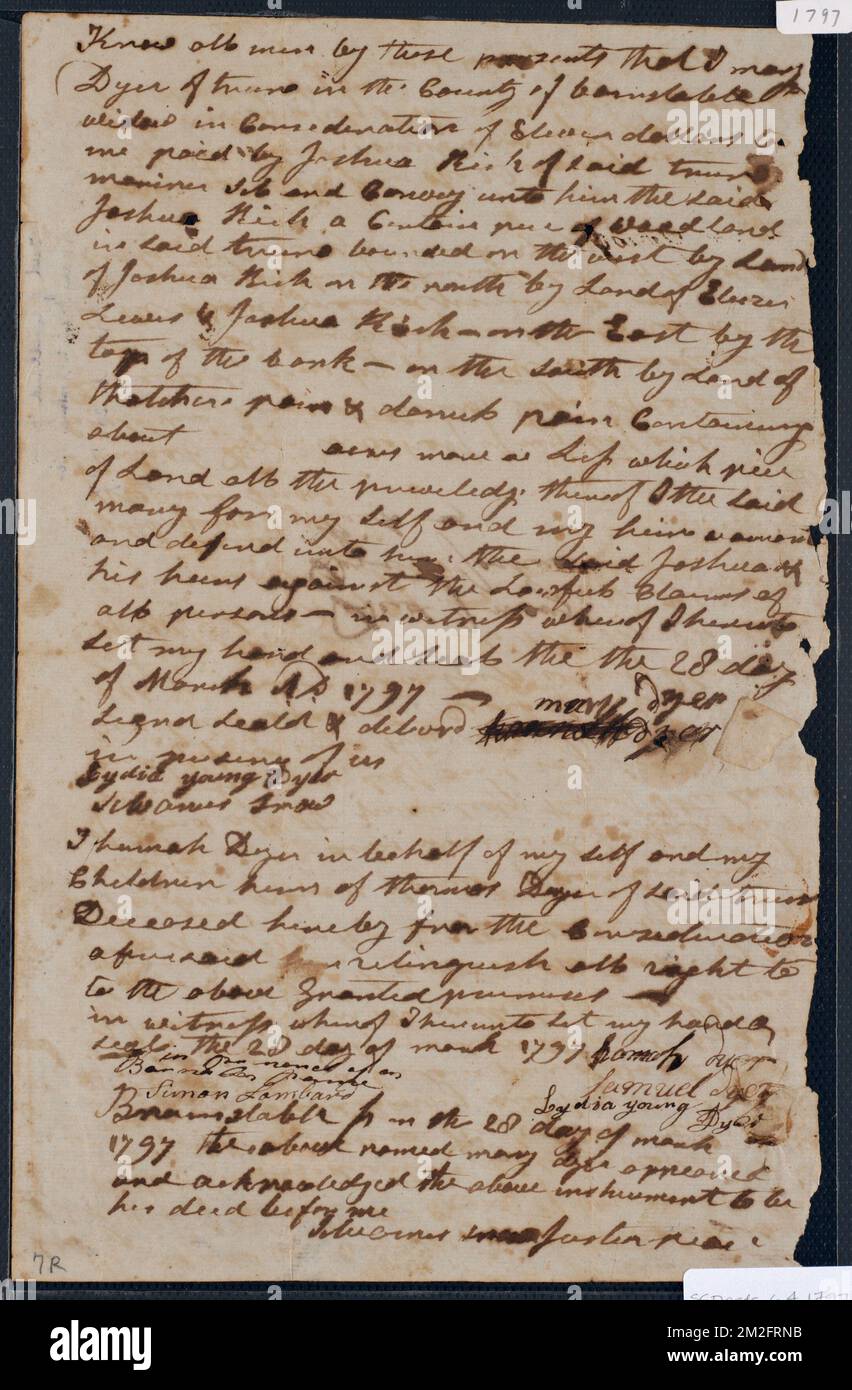 1797
Know all men by these presents that I mary
Dyer of truro in the County of barnstable
widow in Consideration of Eleven dollars to
me paid by Joshua Rich of said truro
mariner sel and Convey unto him the said
Joshua Rich a Certain peec of woodland
in said truro bounded on the west by Land
of Joshua Rich on the north by Land of Eleazer
Lewis & Joshua Rich – on the East by the
top of the bank – on the south by Land of
thatcher pain & pain Containing
about acres more or Less which piece
of Land all the priveledg thereof I the said
mary for my self and my heirs warrant
and defend unto him the said Joshua &
his heirs against the Lawful Claims of
all persons – in witness whereof I hereunto
set my hand and seal the the 28 day
of March AD 1797 – mary Dyer
signd seald & deliverd dyer
in presenc of us
Lydia young Dyer
Silvanus Snow
I hannah Dyer in behalf of my self and my
Children heirs of thomas Dyer of said truro
Deceased hereby for the Consideration
aforesaid relinquish all right to
to the above Granted premises –
in witness whereof I hereunto set my hand &
seal the 28 day of march 1797 hannah Dyer
in presence of us
Barnabas paine
Samuel dyer
Simon Lombard
Lydia young Dyer
Barnstable ss on the 28 day of march
1797 the above named mary dyer appeared
and acknowledged the above instrument to be
his deed before me
Silvanus snow Justes peace
7R
alamy
Image ID: 2M2FRNB
www.alamy.com